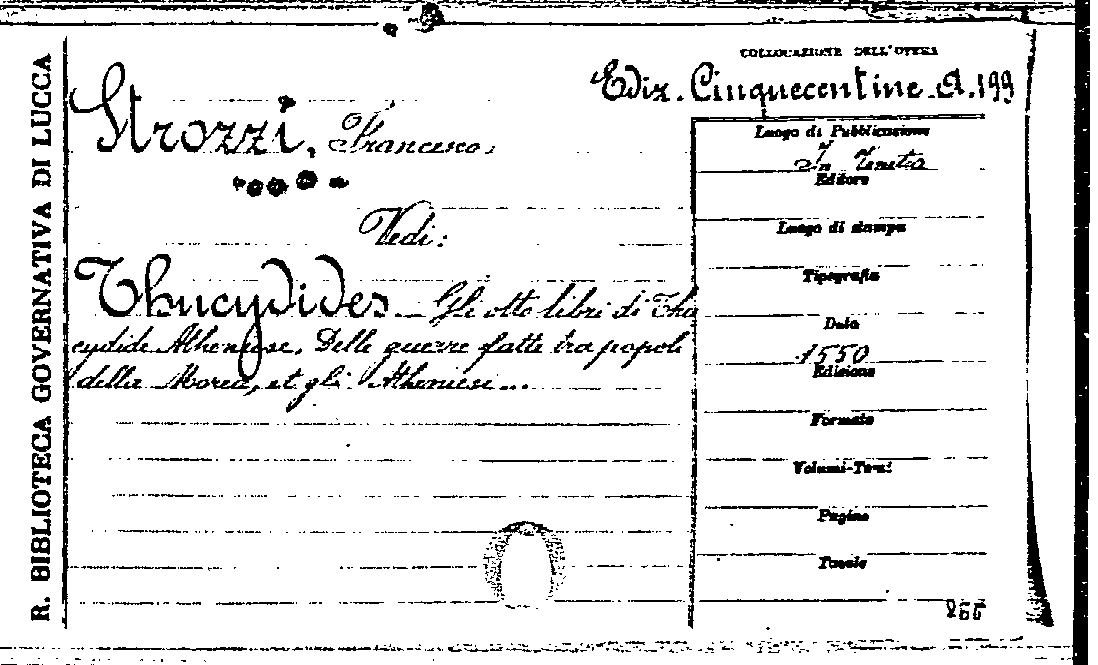 R. BIBLIOTECA GOVERNATIVA DI LUCCA
COLLOCAZIONE DELL'OPERA
Ediz. Cinquecentine A. 199
Strozzi, Francesco.
Vedi:
Thucydides - Gli otto libri di Thu
cydide Atheniese, Delle guerre fatte tra popoli
della Morea, et gli Atheniesi...
Luogo di Pubblicazione
In Venetia
Editore
Luogo di stampa
Tipografia
Data
1550
Edizione
Formato
Volumi-Tomi
Pagine
Tavole